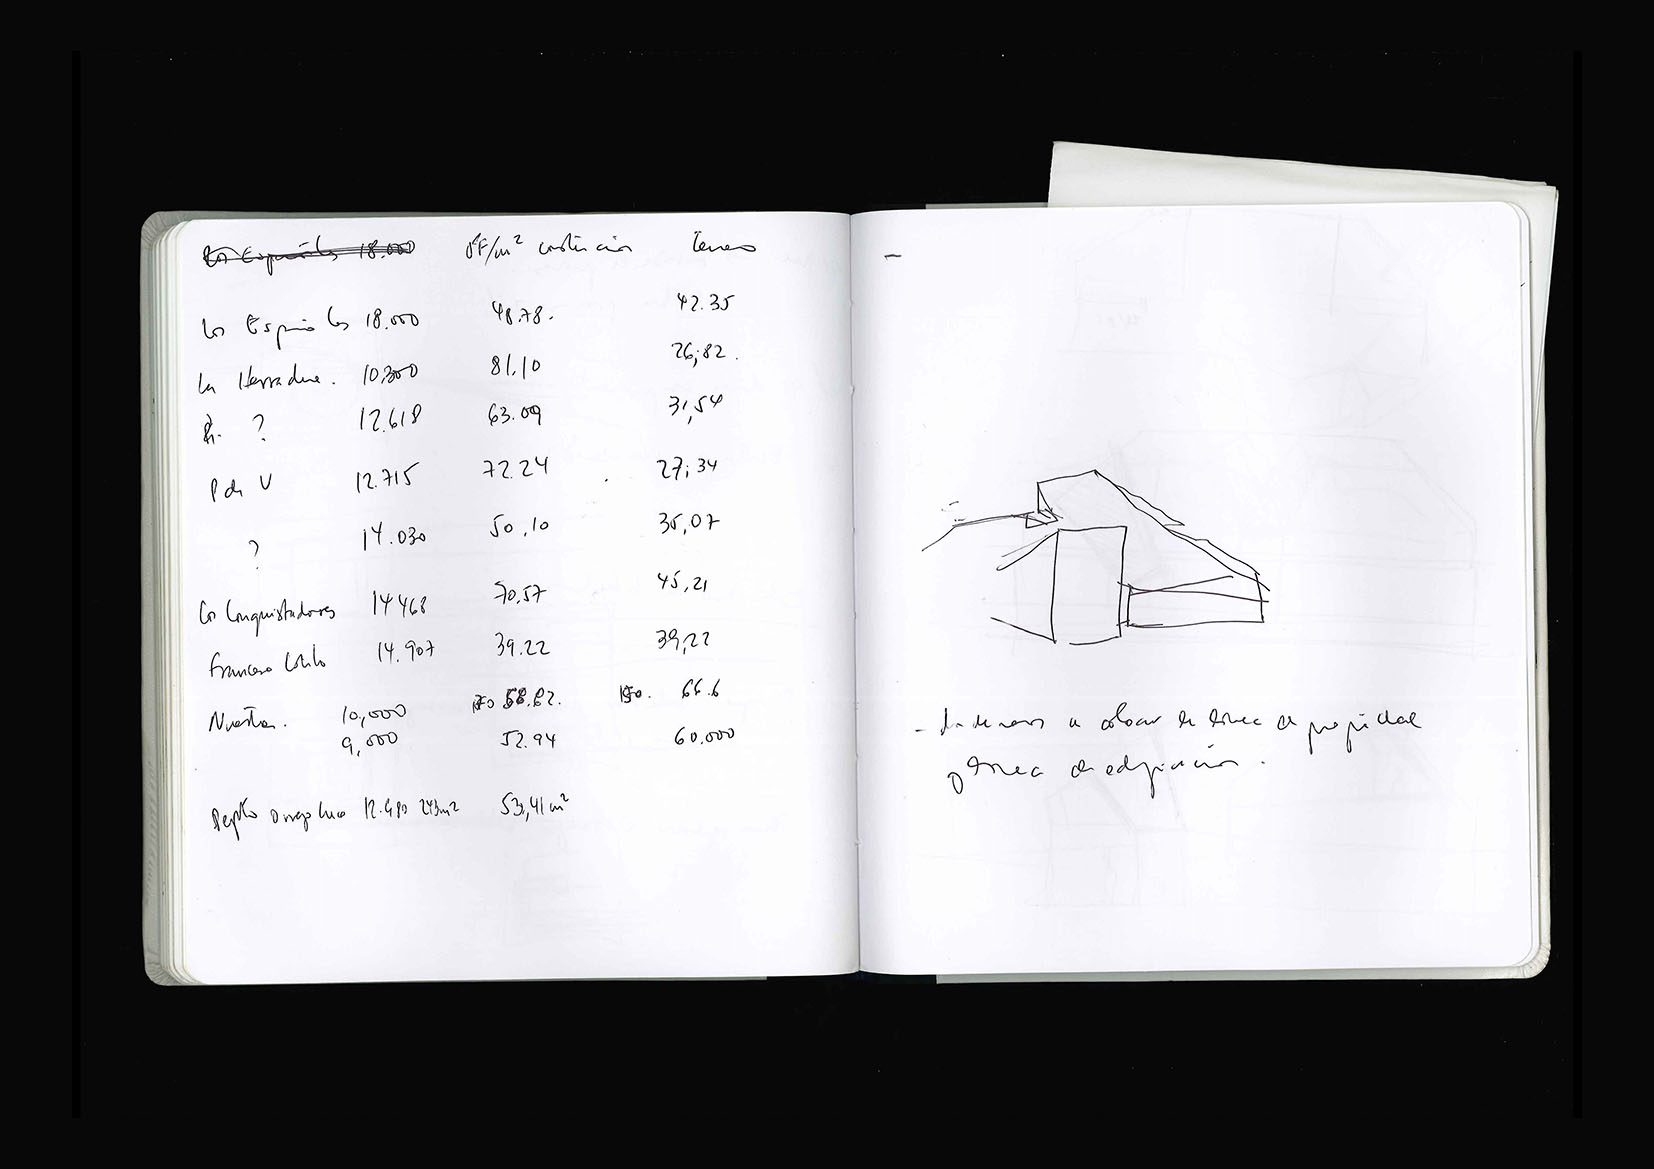 Los Españoles 18.000 UF/m² construcción terreno
Los Españoles 18.000 48.78. 42.35
La Herradura. 10,300 81.10 26,82.
? 12.618 63.09 31,54
P de V 12.715 72.24 27,34
? 14.030 50,10 35,07
Los Conquistadores 14468 70,57 45,21
Francisco 14.907 39.22 39,22
Nuestra. 10,000 58.82. 150. 66.6
9,000 52.94 60.000
Depto Orrego Luco 12.980 243m2 53,41m²
-
- a colocar la línea de propiedad
y línea de edificación.